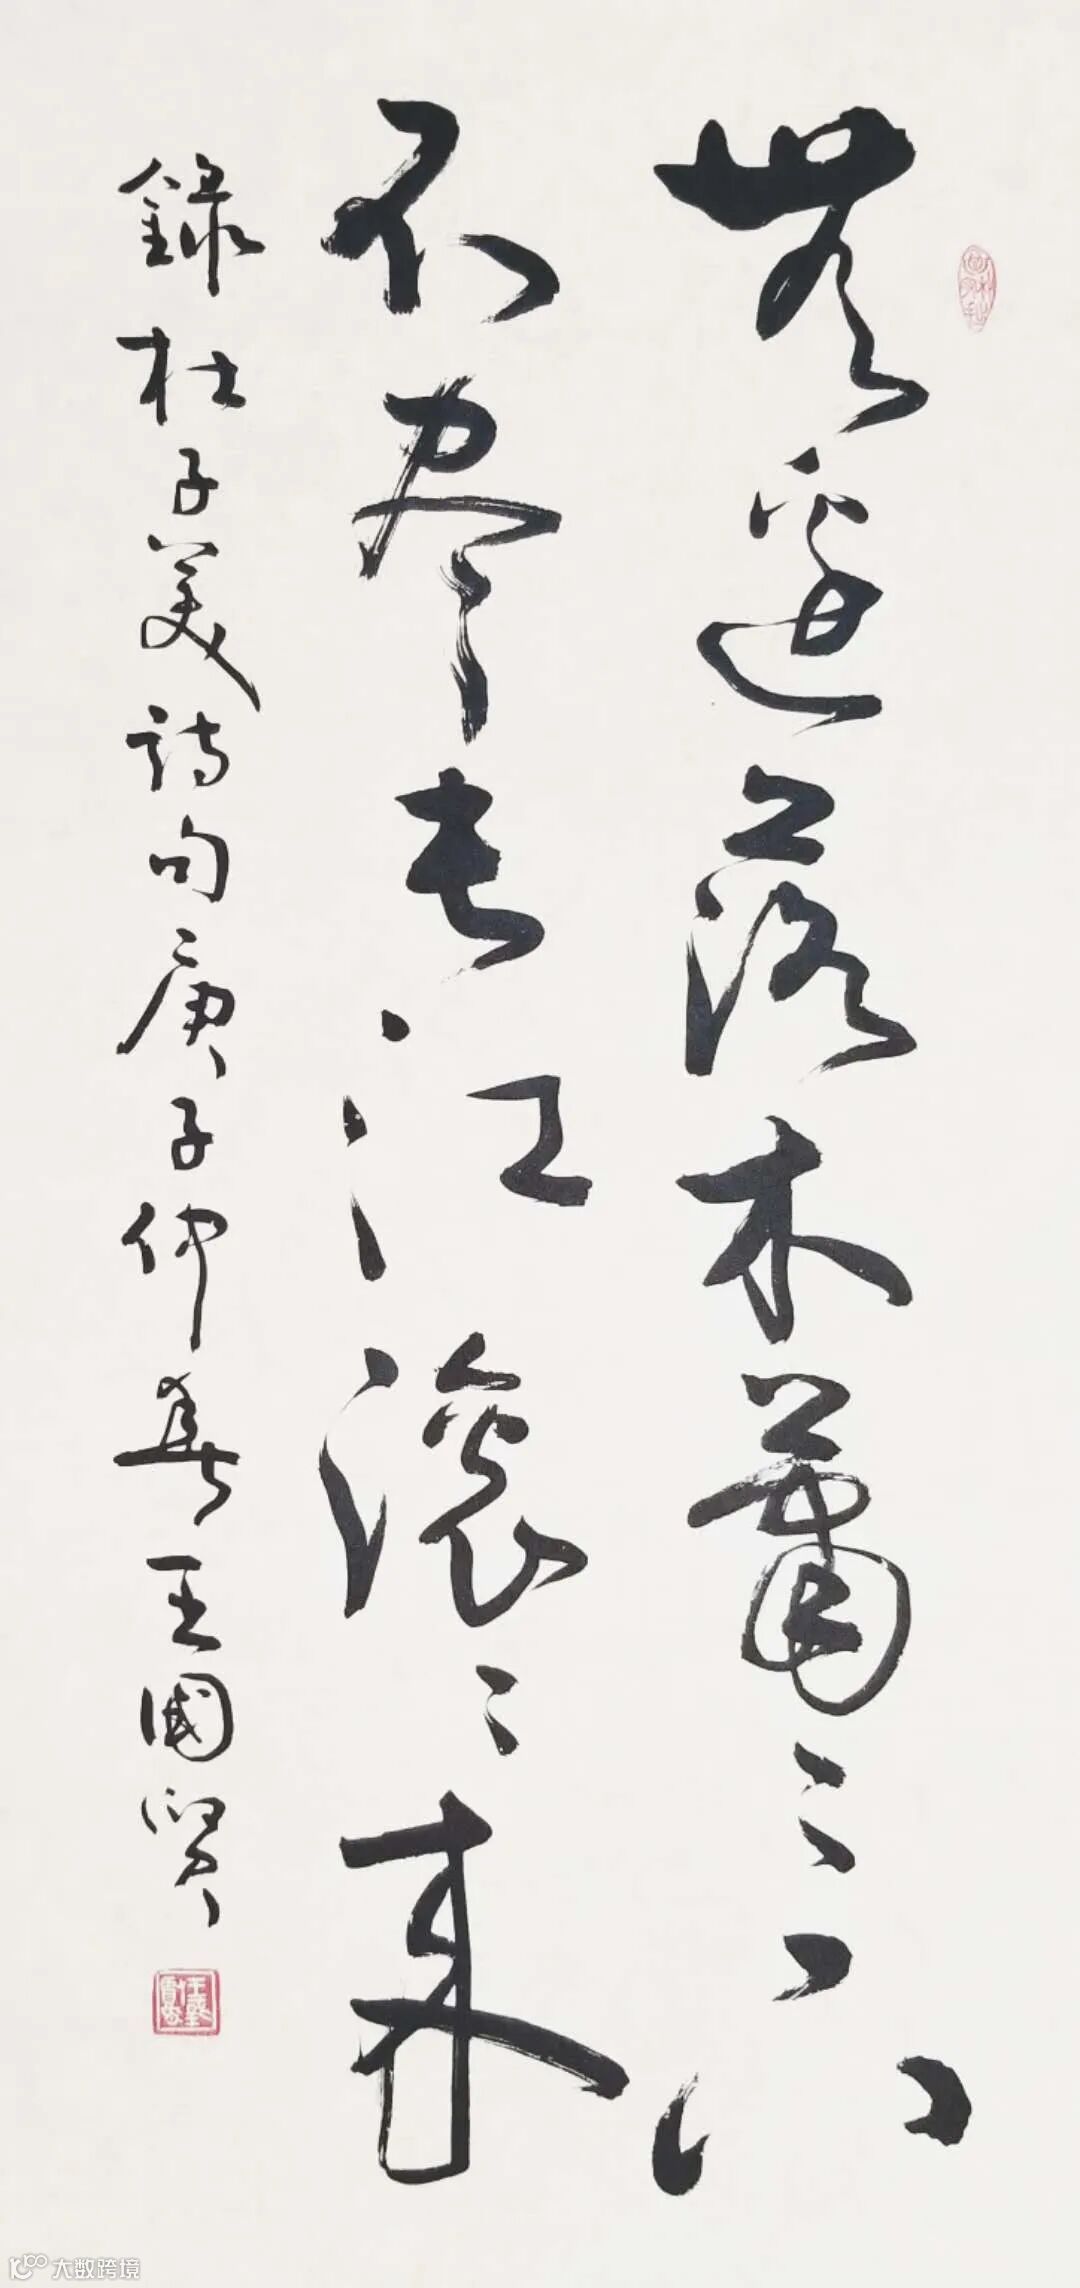 無邊落木蕭〻下
不盡長江滾〻來
錄杜子美詩句庚子仲春王國賢
大数跨境